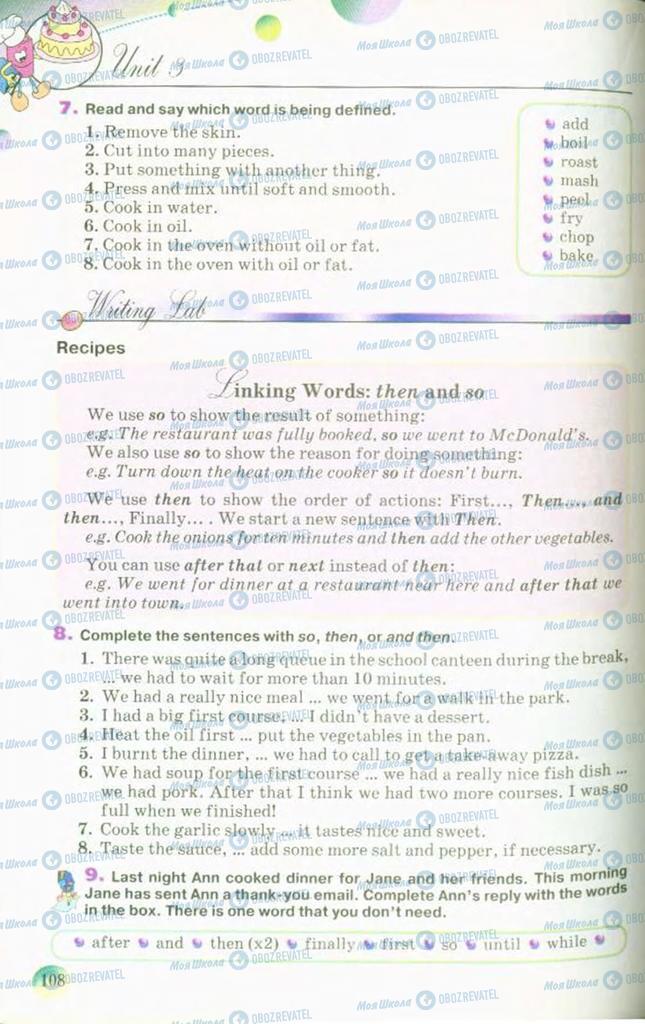 Unit 3
7. Read and say which word is being defined.
1. Remove the skin.
2. Cut into many pieces.
3. Put something with another thing.
4. Press and mix until soft and smooth.
5. Cook in water.
6. Cook in oil.
7. Cook in the oven without oil or fat.
8. Cook in the oven with oil or fat.
add
boil
roast
mash
peel
fry
chop
bake
Writing Lab
Recipes
Linking Words: then and so
We use so to show the result of something:
e.g. The restaurant was fully booked, so we went to McDonald's.
We also use so to show the reason for doing something:
e.g. Turn down the heat on the cooker so it doesn't burn.
We use then to show the order of actions: First..., Then..., and
then..., Finally... . We start a new sentence with Then.
e.g. Cook the onions for ten minutes and then add the other vegetables.
You can use after that or next instead of then:
e.g. We went for dinner at a restaurant near here and after that we
went into town.
8. Complete the sentences with so, then, or and then.
1. There was quite a long queue in the school canteen during the break,
... we had to wait for more than 10 minutes.
2. We had a really nice meal ... we went for a walk in the park.
3. I had a big first course, ... I didn't have a dessert.
4. Heat the oil first ... put the vegetables in the pan.
5. I burnt the dinner, ... we had to call to get a take-away pizza.
6. We had soup for the first course ... we had a really nice fish dish ...
we had pork. After that I think we had two more courses. I was so
full when we finished!
7. Cook the garlic slowly ... it tastes nice and sweet.
8. Taste the sauce, ... add some more salt and pepper, if necessary.
9. Last night Ann cooked dinner for Jane and her friends. This morning
Jane has sent Ann a thank-you email. Complete Ann's reply with the words
in the box. There is one word that you don't need.
after and then (x2) finally first so until while
108
Моя Школа OBOZREVATEL